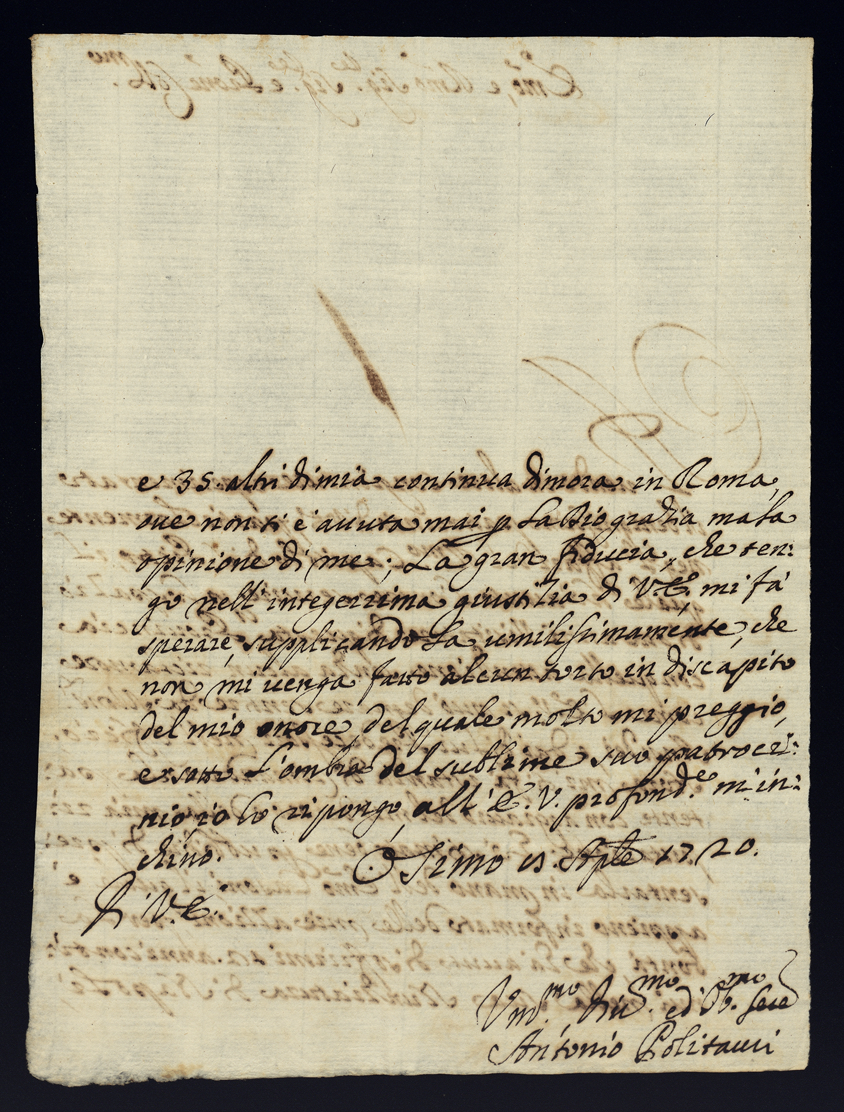 e 35. altri di mia continua dimora in Roma,
ove non si è avuta mai p la Dio grazia mala
opinione di me; La gran fiducia, che ten:
go nell'integerrima giustizia di V.E., mi fa'
sperare, supplicandola umilissimamente, che
non mi venga fatto alcun torto in discapito
del mio onore, del quale molto mi preggio,
e sotto l'ombra del sublime suo patroci:
nio io lo ripongo, all'E. V. profond.e m'in:
chino. Osimo Aple 1720.
Di V.E.
Um.mo Div.mo ed Ob.mo Serv
Antonio Politauri